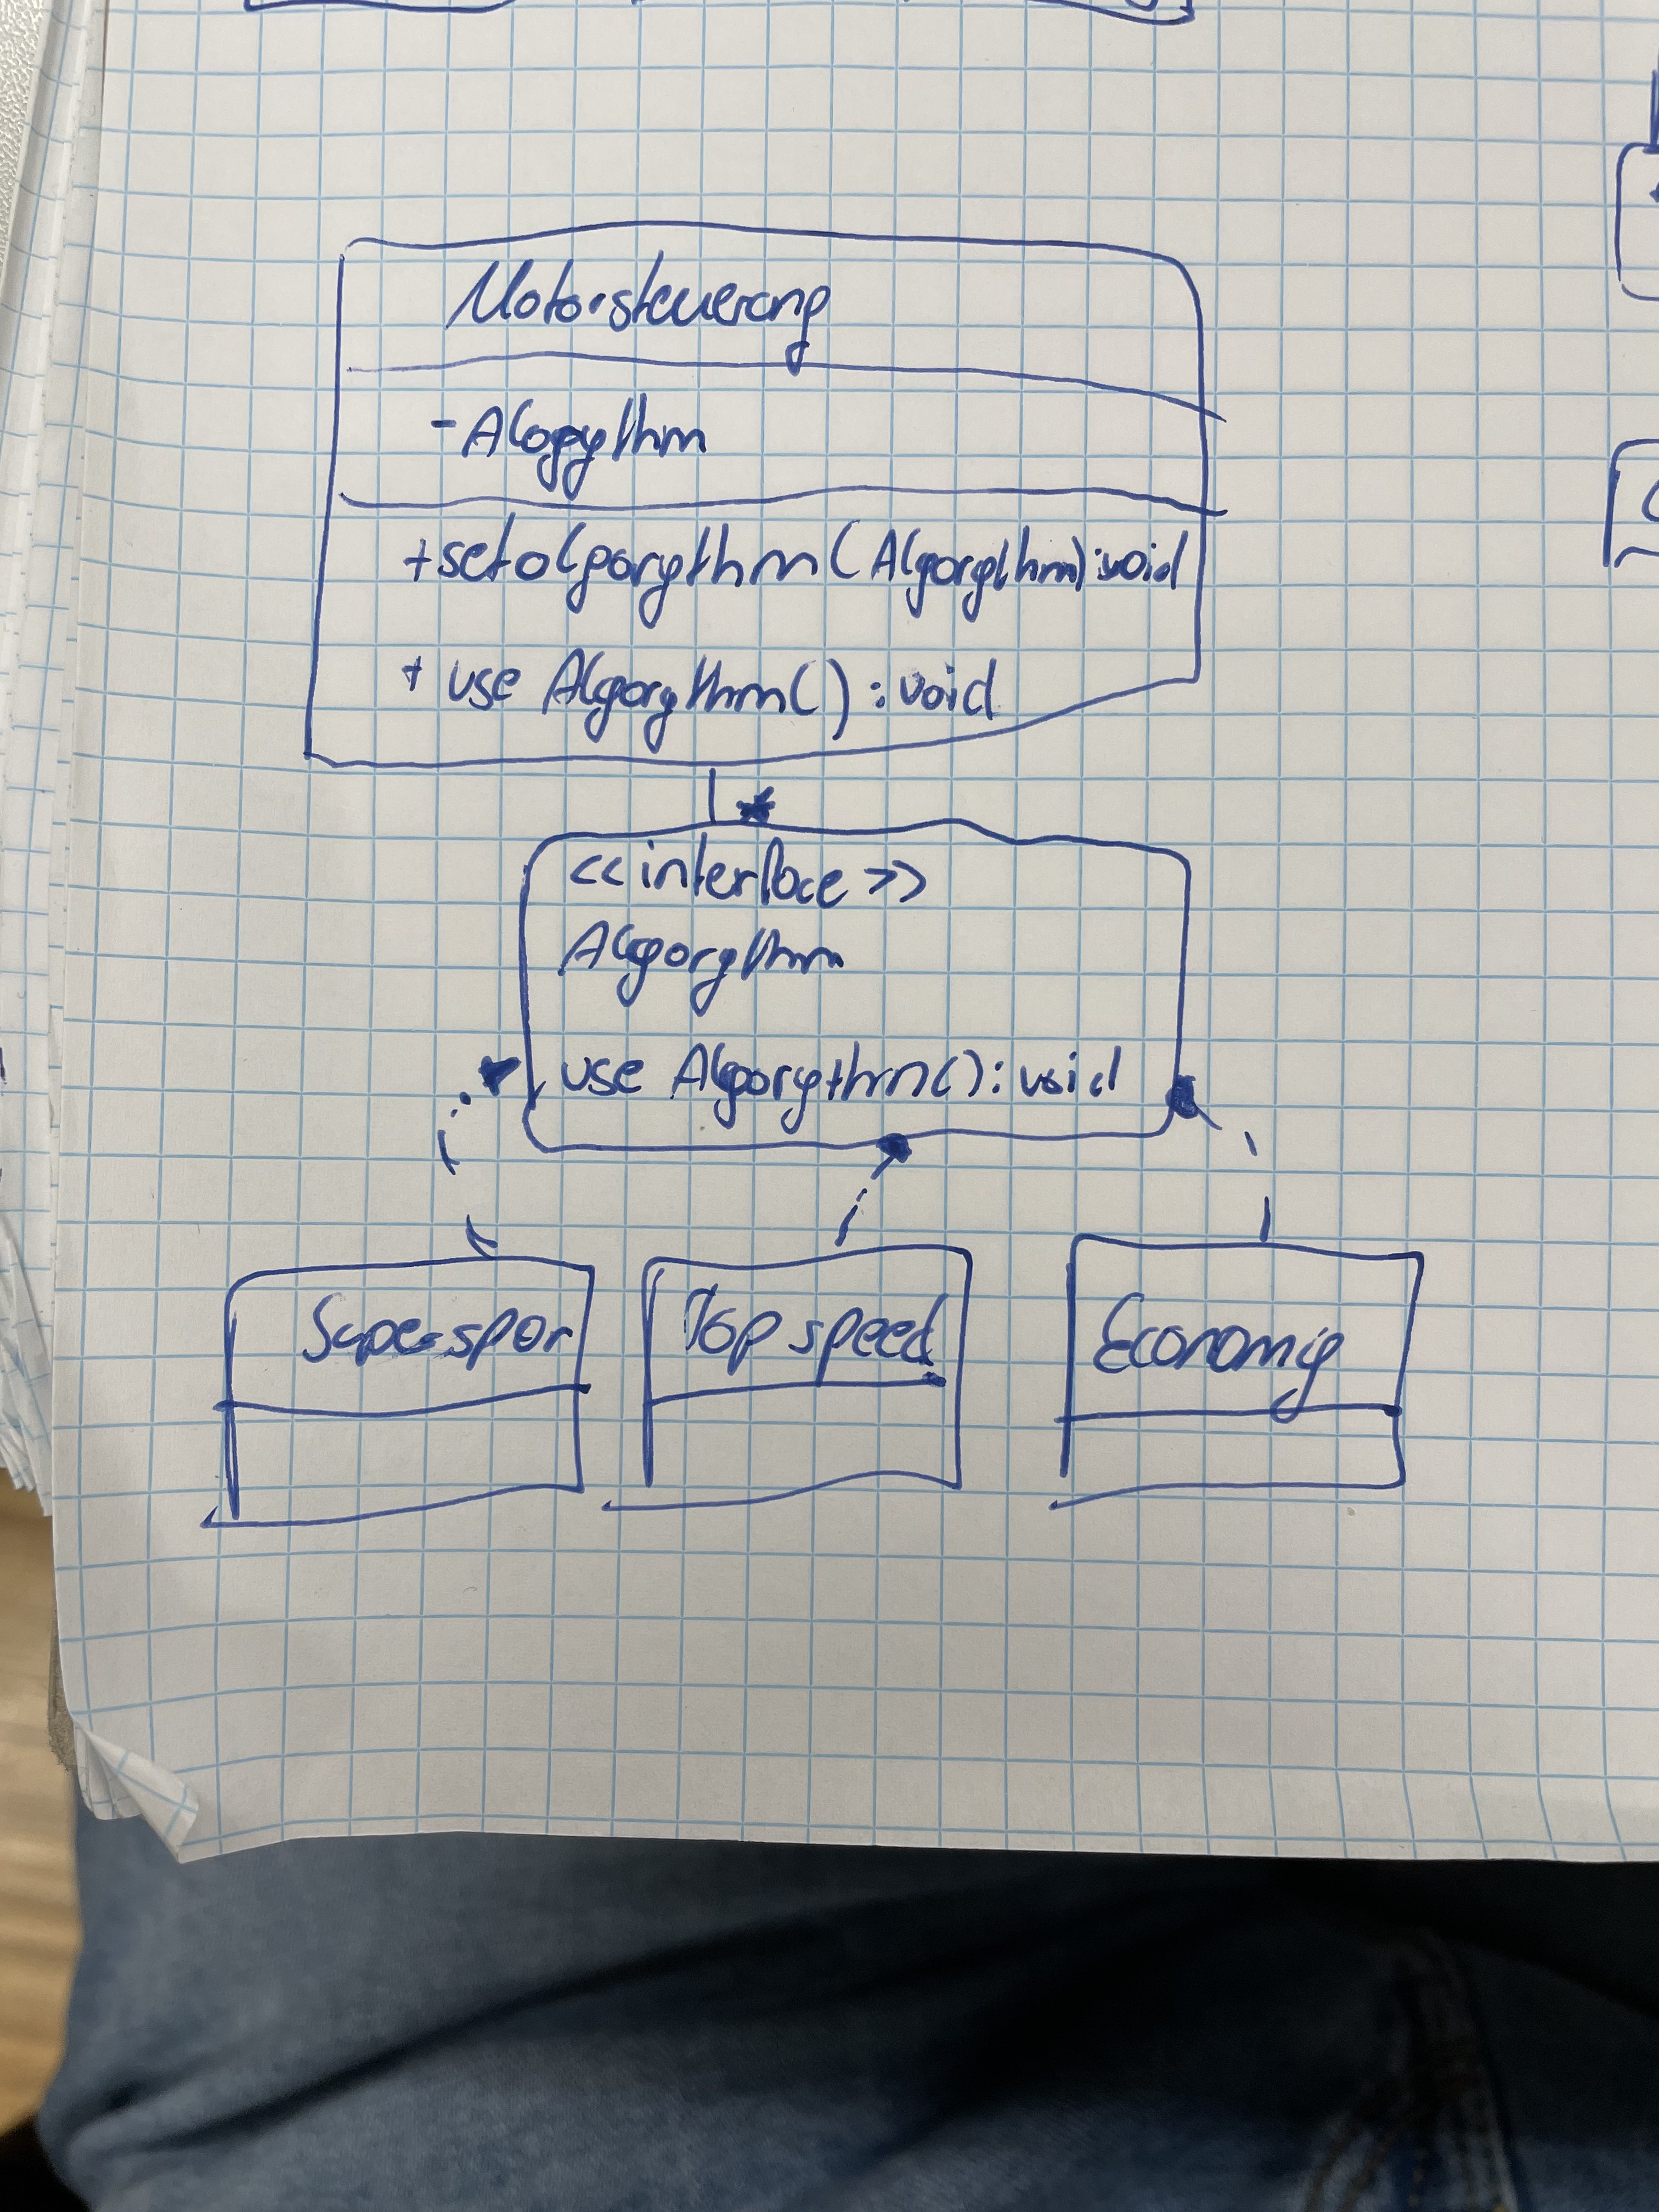 Motorsteuerung
- Alogythm
+setalgorythm(Algorythm):void
+ use Algorythm() : void
*
<<interface>>
Algorythm
use Algorythm(): void
Superspor
Top speed
Economy